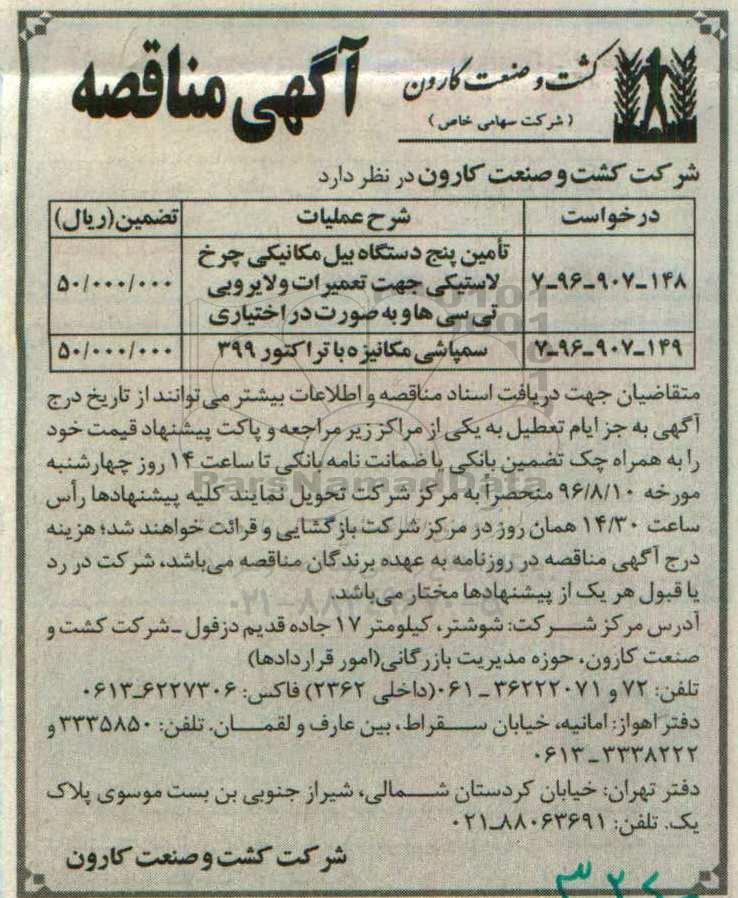 کشت و صنعت کارون
(شرکت سهامی خاص)
آگهی مناقصه
شرکت کشت و صنعت کارون در نظر دارد
درخواست شرح عملیات تضمین(ریال)
۷-۹۶-۹۰۷-۱۴۸ تأمین پنج دستگاه بیل مکانیکی چرخ لاستیکی جهت تعمیرات و لایروبی تی سی ها و به صورت در اختیاری ۵۰/۰۰۰/۰۰۰
۷-۹۶-۹۰۷-۱۴۹ سمپاشی مکانیزه با تراکتور ۳۹۹ ۵۰/۰۰۰/۰۰۰
متقاضیان جهت دریافت اسناد مناقصه و اطلاعات بیشتر می‌توانند از تاریخ درج
آگهی به جز ایام تعطیل به یکی از مراکز زیر مراجعه و پاکت پیشنهاد قیمت خود
را به همراه چک تضمین بانکی یا ضمانت نامه بانکی تا ساعت ۱۴ روز چهارشنبه
مورخه ۹۶/۸/۱۰ منحصراً به مرکز شرکت تحویل نمایند کلیه پیشنهادها رأس
ساعت ۱۴/۳۰ همان روز در مرکز شرکت بازگشایی و قرائت خواهند شد؛ هزینه
درج آگهی مناقصه در روزنامه به عهده برندگان مناقصه می‌باشد، شرکت در رد
یا قبول هر یک از پیشنهادها مختار می‌باشد.
آدرس مرکز شرکت: شوشتر، کیلومتر ۱۷ جاده قدیم دزفول - شرکت کشت و
صنعت کارون، حوزه مدیریت بازرگانی(امور قراردادها)
تلفن: ۷۲ و ۳۶۲۲۲۰۷۱ - ۰۶۱(داخلی ۲۳۶۲) فاکس: ۶۲۲۷۳۰۶-۰۶۱۳
دفتر اهواز: امانیه، خیابان سقراط، بین عارف و لقمان. تلفن: ۳۳۳۵۸۵۰ و
۳۳۳۸۲۲۲-۰۶۱۳
دفتر تهران: خیابان کردستان شمالی، شیراز جنوبی بن بست موسوی پلاک
یک. تلفن: ۸۸۰۶۳۶۹۱-۰۲۱
شرکت کشت و صنعت کارون
ParsNamadData